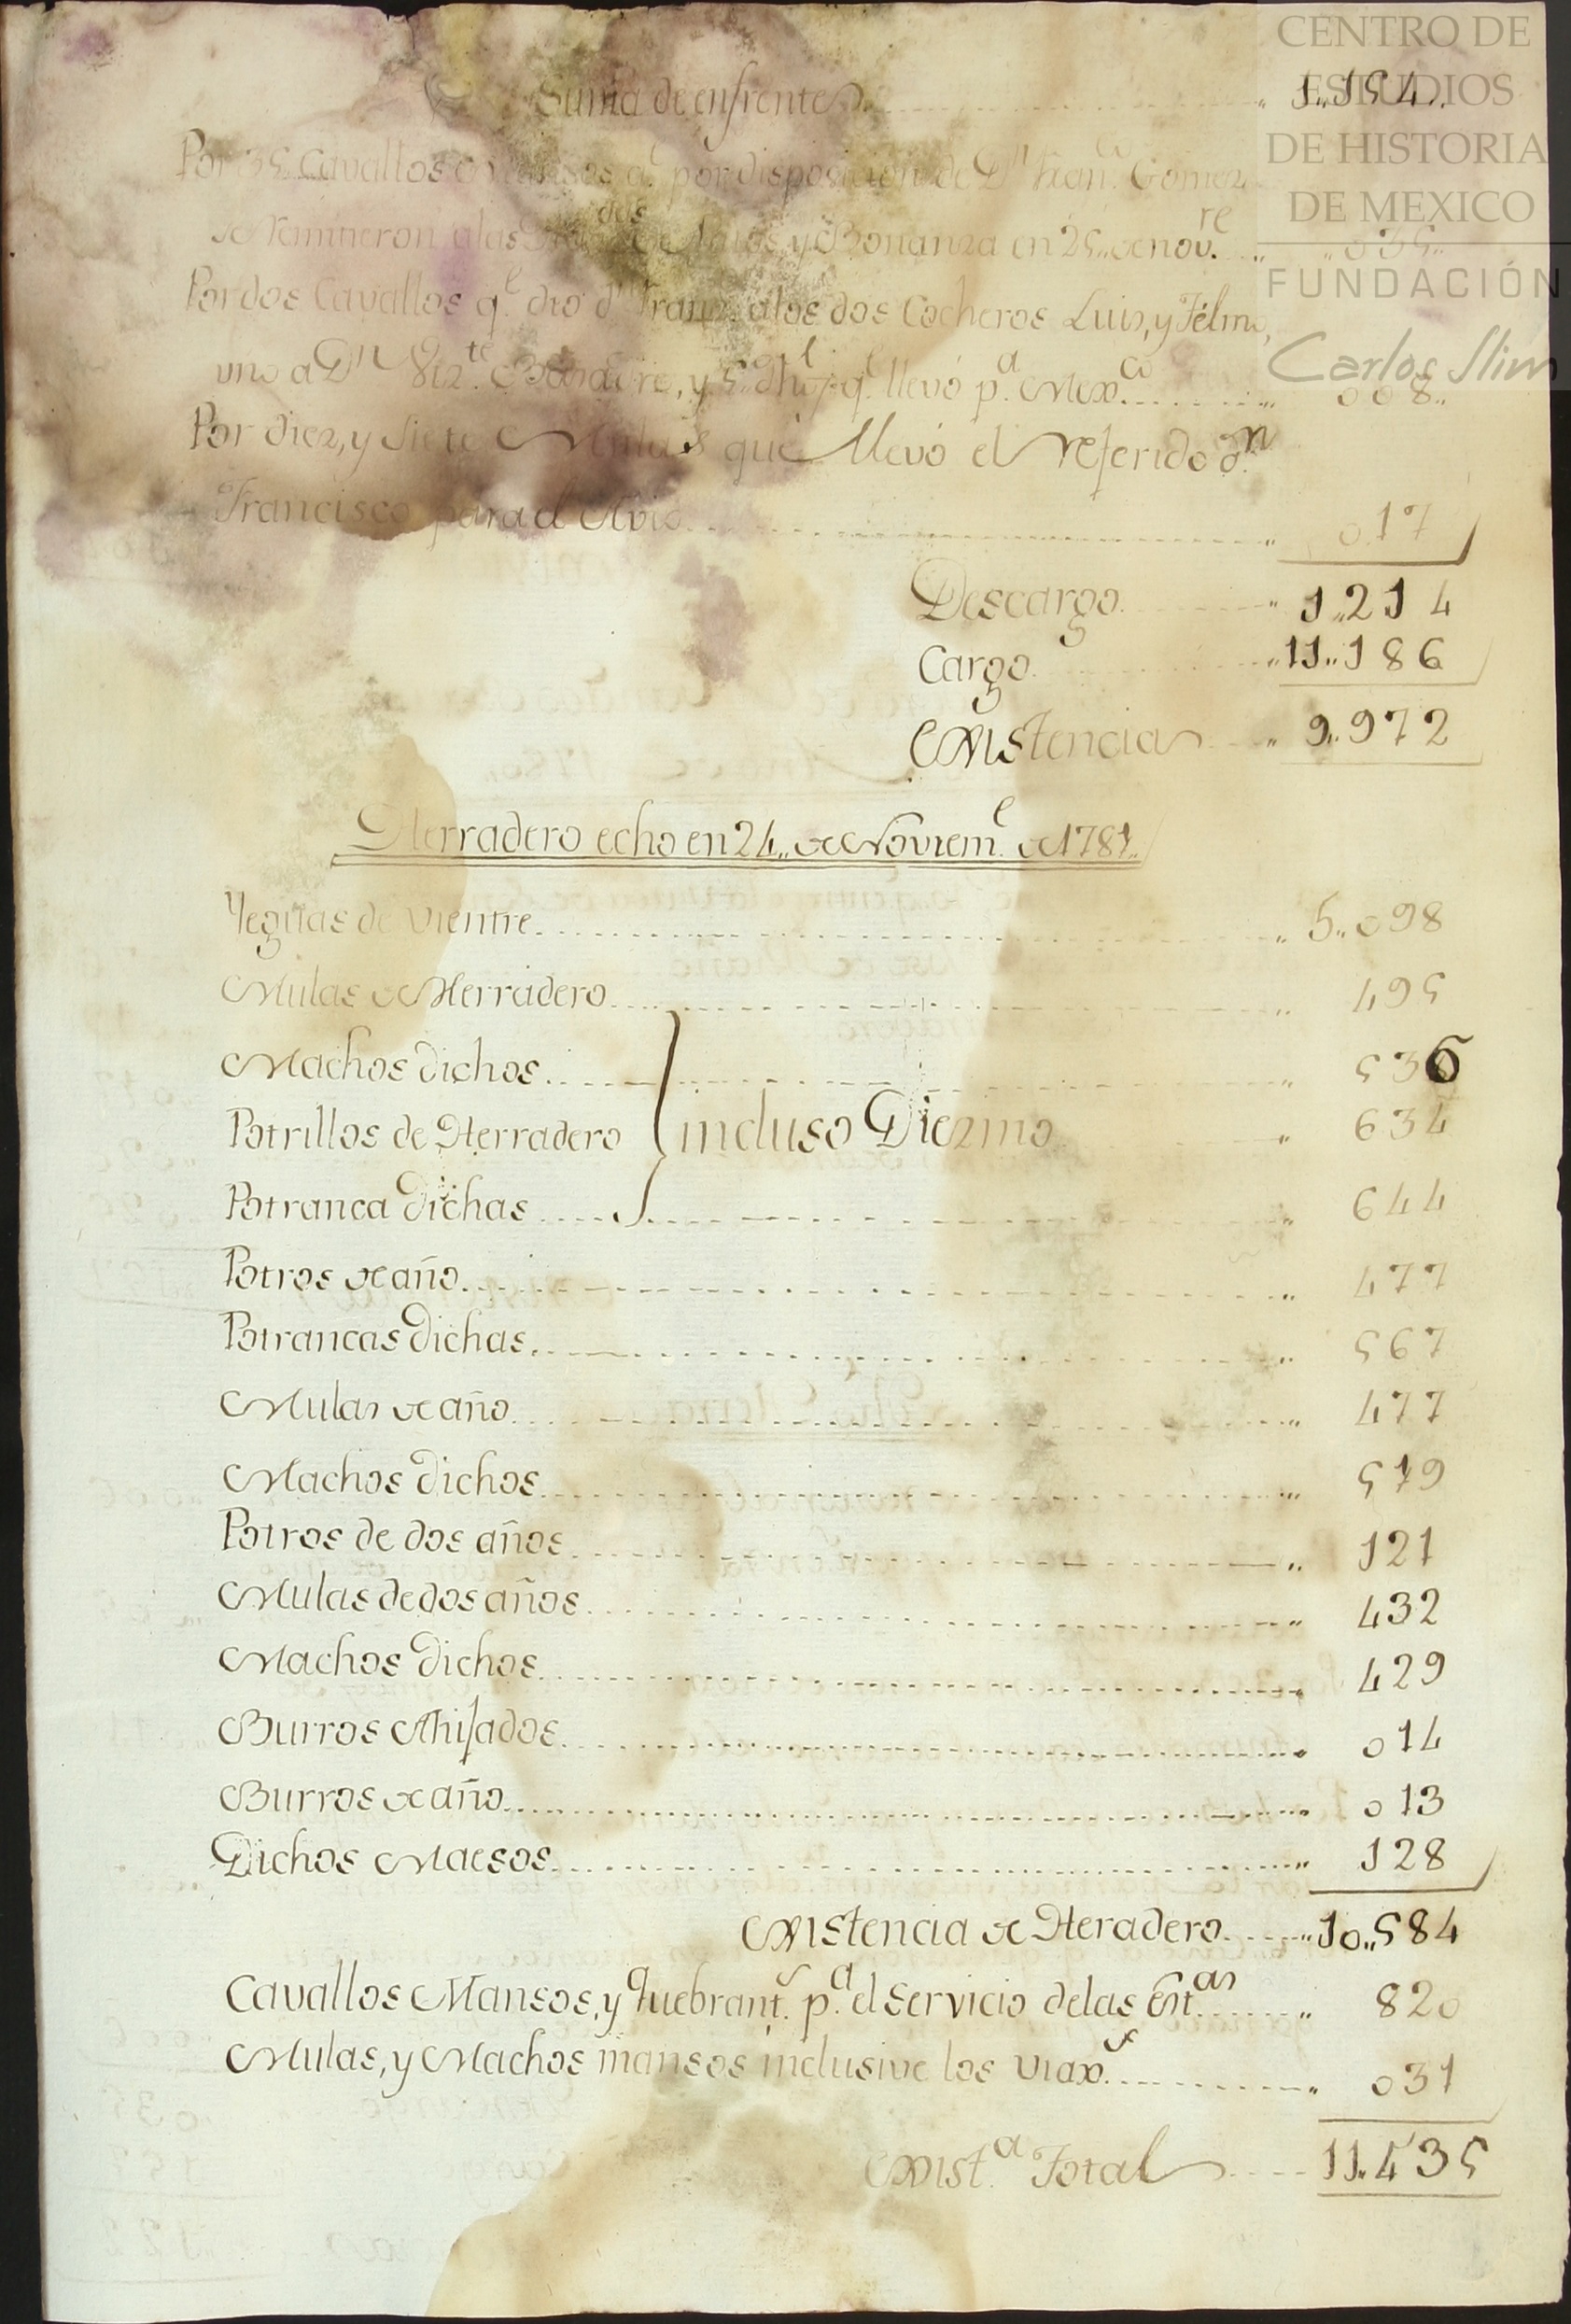 CENTRO DE
ESTUDIOS
DE HISTORIA
DE MEXICO
FUNDACIÓN
Carlos Slim
Suma de enfrente 1,,154,,
Por 35 Cavallos Mansos q.e por disposicion de D.n Fran.co Gomez
se remitieron alas y Bonanza en 25,, de nov.re ,,035,,
Por dos Cavallos q.e dio d.n Fran.co alos dos Cocheros Luis, y
uno a D.n y 5 q.e llevó p.a Mex.co 008,,
Por diez, y siete Mulas que llevó el referido d.n
Francisco para el Avio 017
Descargo 1,,214
Cargo 11,,186
Existencia 9,,972
Herradero echo en 24,, de Noviem.e de 1781,,
Yeguas de vientre 5,,098
Mulas de Herradero 495
Machos dichos 536
Potrillos de Herradero incluso Diezmo 634
Potranca dichas 644
Potros de año 477
Potrancas dichas 567
Mulas de año 477
Machos dichos 519
Potros de dos años 121
Mulas de dos años 432
Machos dichos 429
Burros Ahijados 014
Burros de año 013
Dichos Maesos 128
Existencia de Heradero 10,,584
Cavallos Mansos, y quebrant.s p.a el servicio delas Est.as 820
Mulas, y Machos mansos inclusive los viax.s 031
Exist.a Total 11,,435